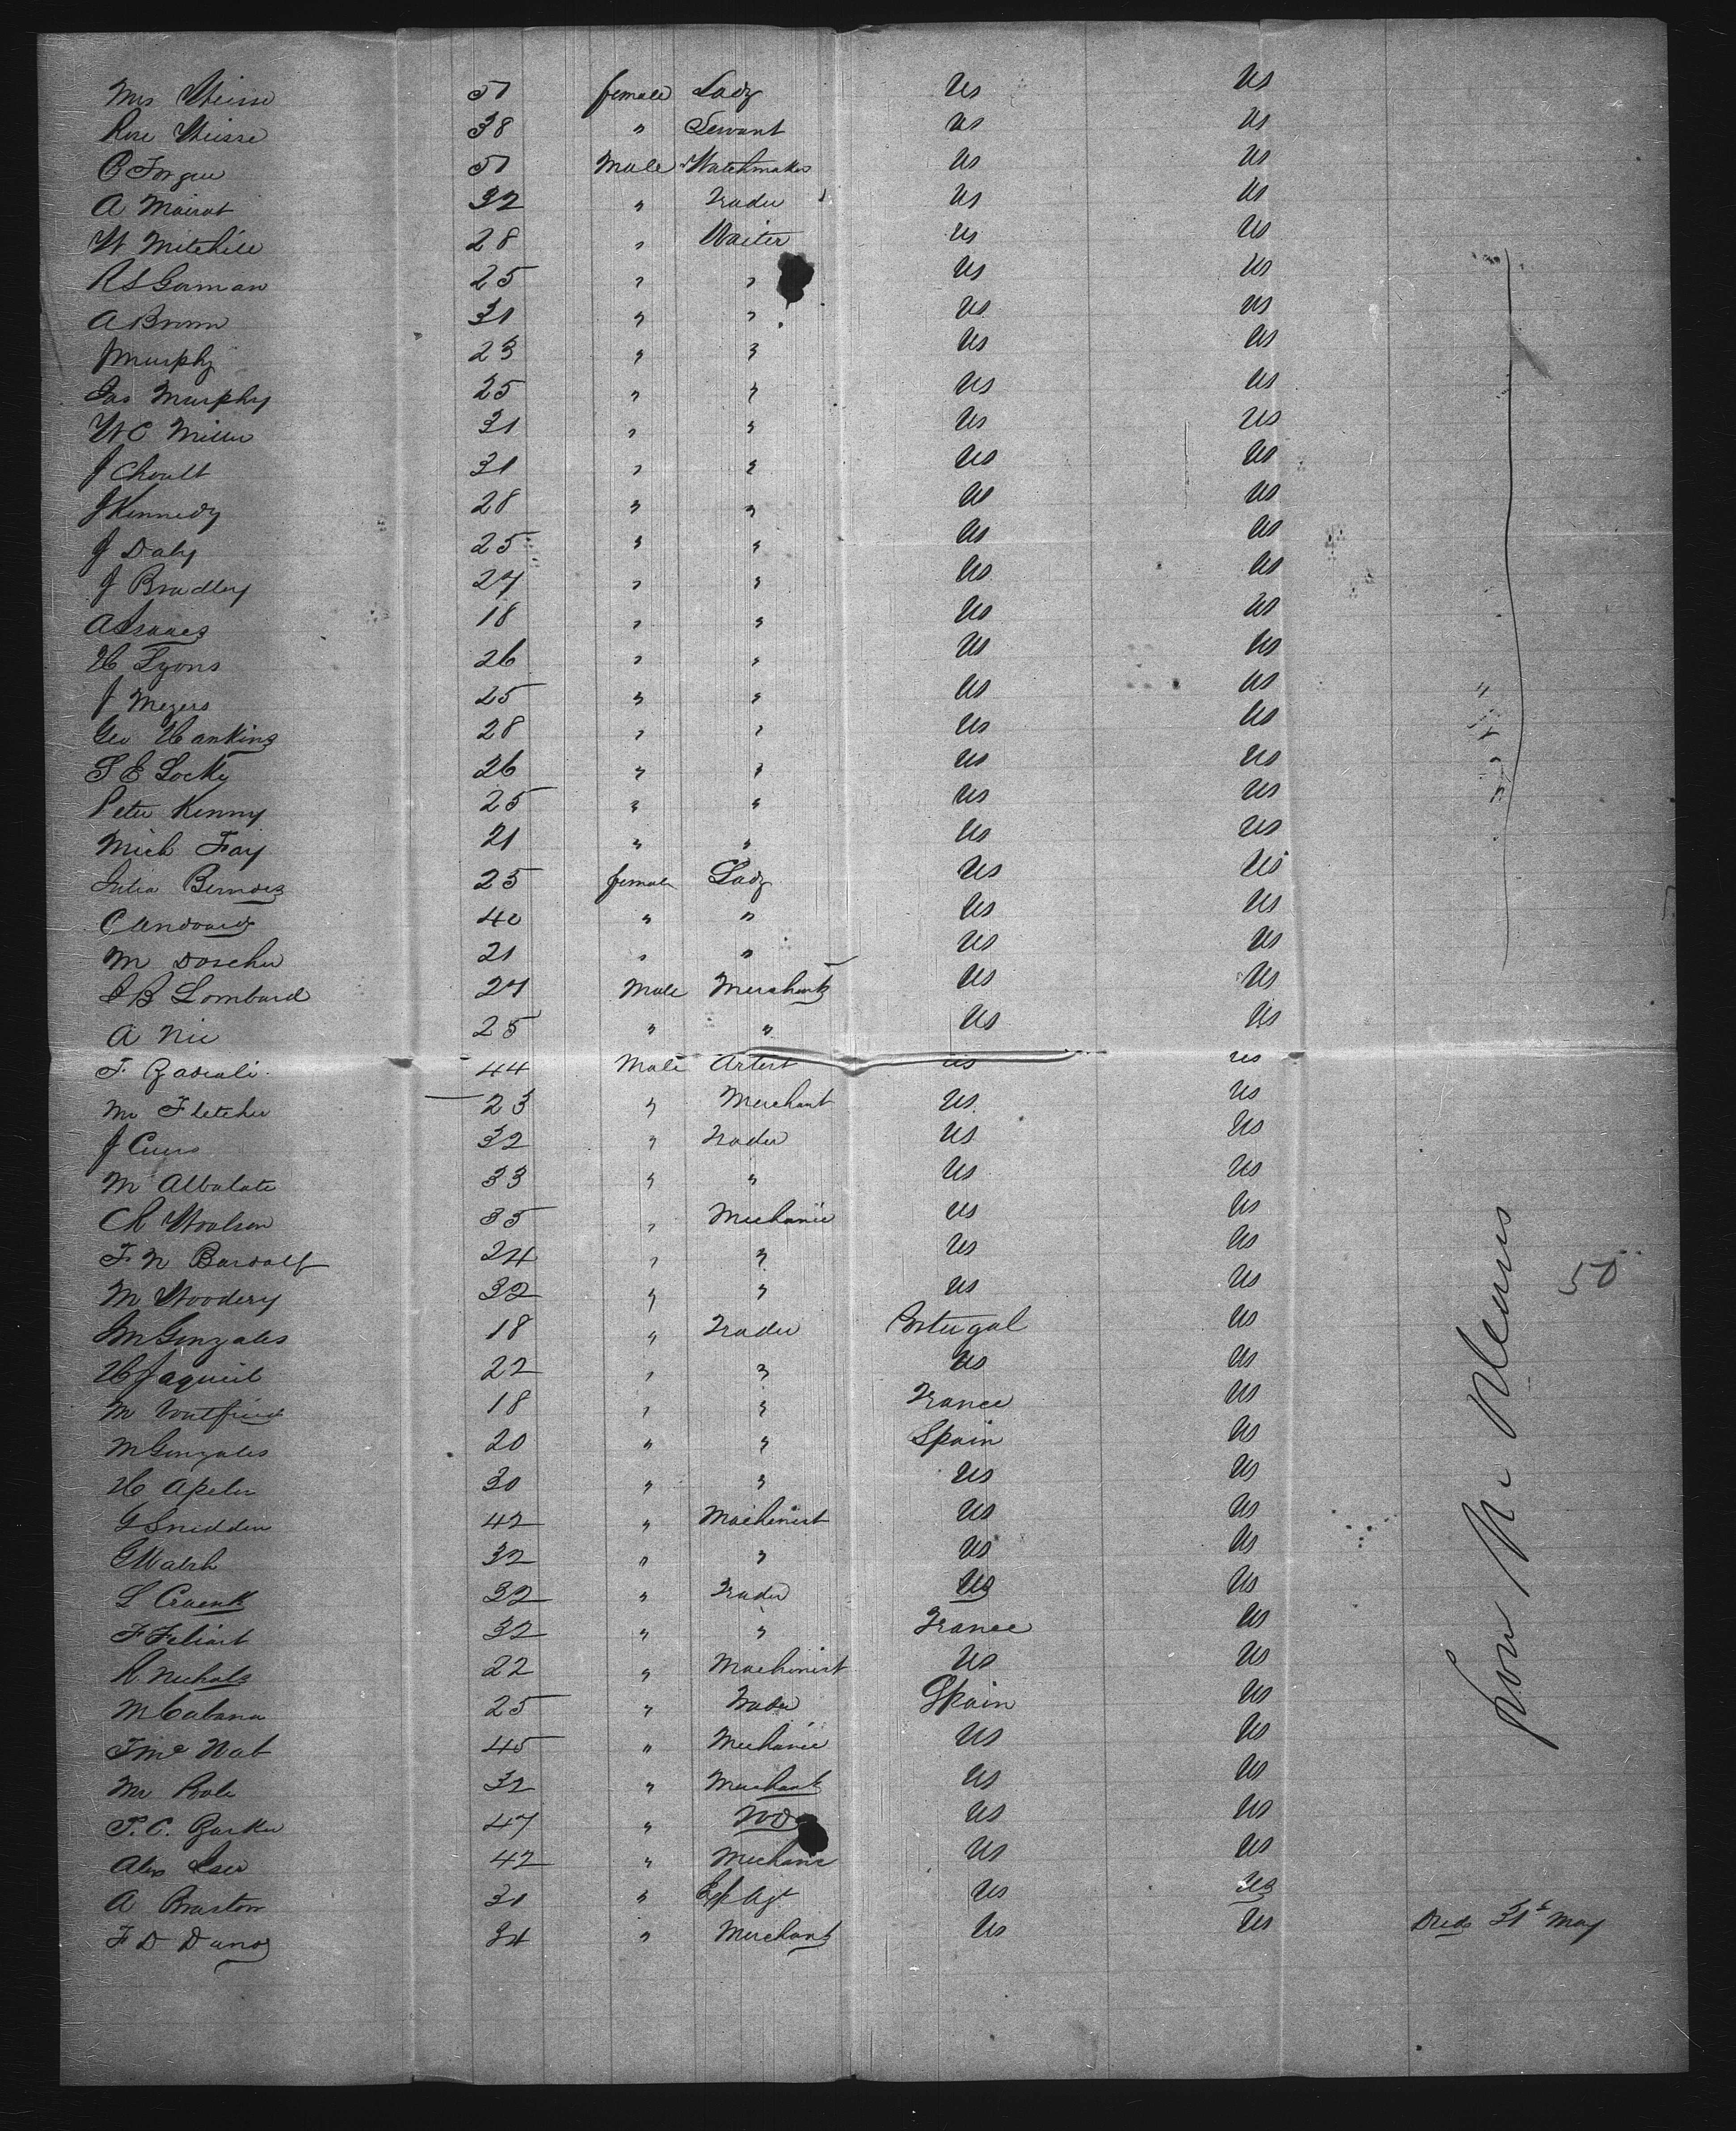 Mrs Weisse 51 female Lady Us Us
Rose Weisse 38 " Servant Us Us
51 Male Watchmaker Us Us
A Mairat 32 " Trader Us Us
W Mitchell 28 " Waiter Us Us
R S Gorman 25 " " Us Us
A Brown 31 " " Us Us
J Murphy 23 " " Us Us
Jas Murphy 25 " " Us Us
W C Miller 31 " " Us Us
J Choult 31 " " Us Us
J Kennedy 28 " " Us Us
J Daly 25 " " Us Us
J Bradley 27 " " Us Us
A Isaacs 18 " " Us Us
H Lyons 26 " " Us Us
J Meyers 25 " " Us Us
Geo Hankins 28 " " Us Us
S E Locke 26 " " Us Us
Peter Kenny 25 " " Us Us
Mich Fay 21 " " Us Us
Julia 25 female Lady Us Us
40 " " Us Us
M Doscher 21 " " Us Us
J B Lombard 27 Male Merchant Us Us
A Nic 25 " " Us Us
F 44 Male Artist us us
Mr Fletcher 23 " Merchant Us Us
J 32 " Trader Us Us
M Albalate 33 " " Us Us
C R Woolson 35 " Mechanic Us Us
F N Bardolf 24 " " Us Us
M Woodery 32 " " Us Us
M Gonzales 18 " Trader Portugal Us
H Jaqueil 22 " " Us Us
M 18 " " France Us
M Gonzales 20 " " Spain Us
H Apeler 30 " " Us Us
G Snidden 42 " Machinist Us Us
G Walsh 32 " " Us Us
L 32 " Trader Us Us
F Feliart 32 " " France Us
R Nichols 22 " Machinist Us Us
M Cabana 25 " Trader Spain Us
F Mc Nab 45 " Mechanic Us Us
Mr Role 32 " Merchant Us Us
T. C. Parker 47 " Us Us
Alex 42 " Mechanic Us Us
A Braston 31 " Exp Agt Us Us
F D Danos 34 " Merchant Us Us Died 31st May
from N. Orleans
50